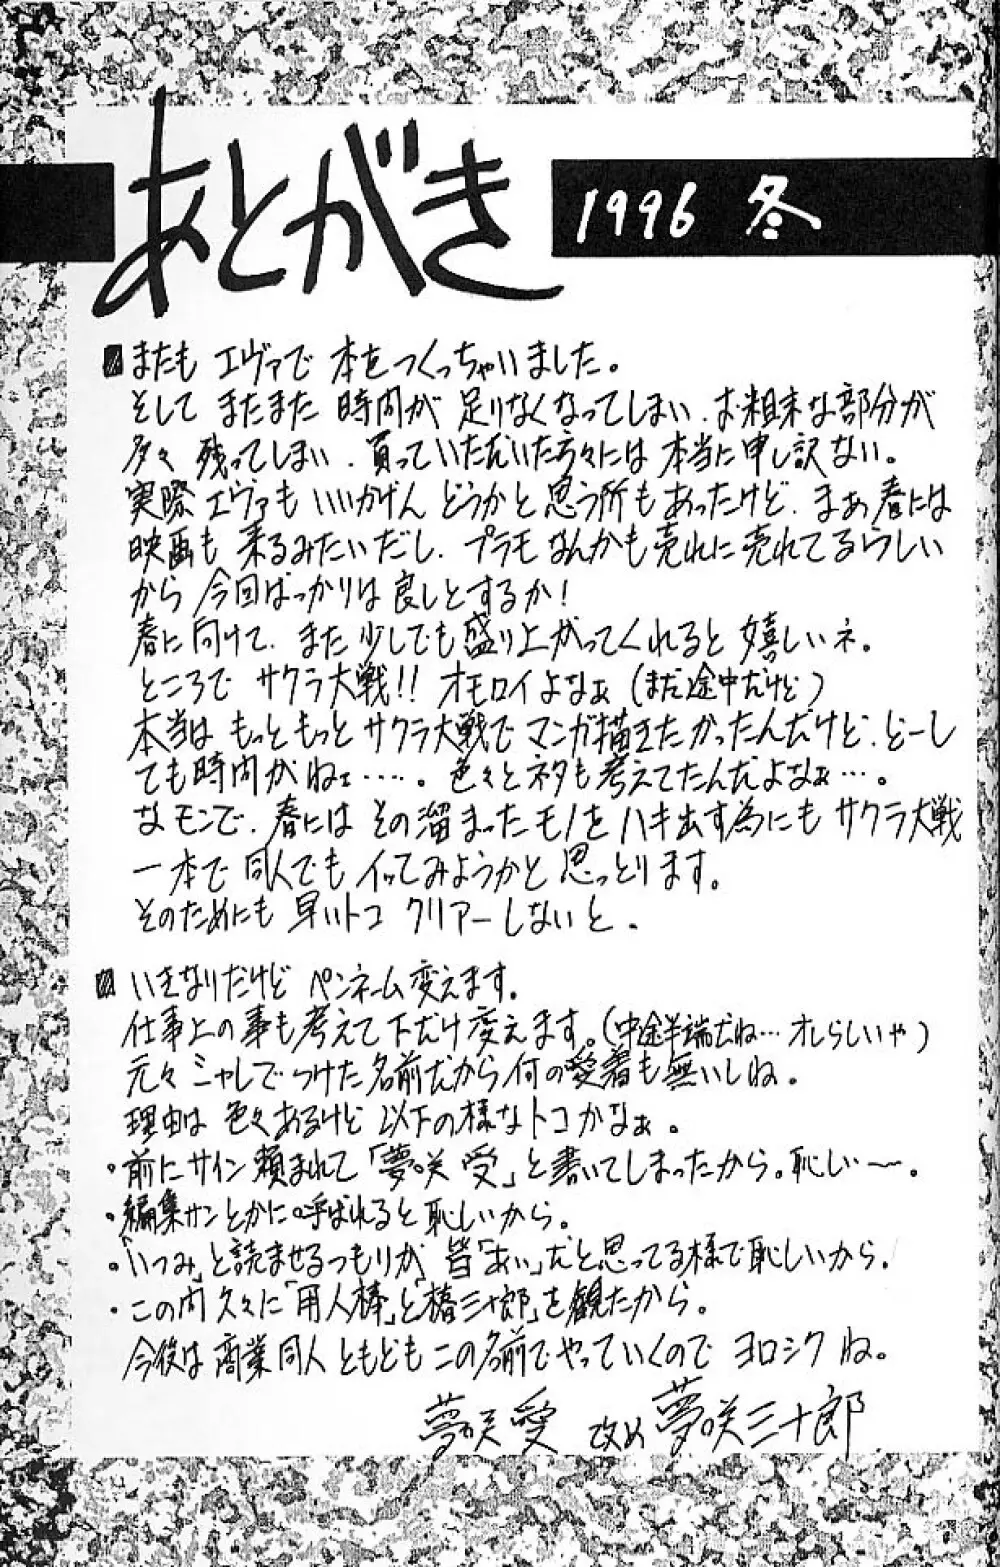 あとがき
1996 冬
またも エヴァで 本をつくっちゃいました。
そして またまた 時間が 足りなくなってしまい、お粗末な部分が
多々 残ってしまい、買っていただいた方々には 本当に申し訳ない。
実際 エヴァも いいかげん どうかと思う所もあったけど、まぁ春には
映画も 来るみたいだし、プラモなんかも売れに売れてるらしい
から 今回ばっかりは 良しとするか!
春に向けて、また少しでも盛り上がってくれると 嬉しいネ。
ところで サクラ大戦!! オモロイよなぁ (まだ途中だけど)
本当は もっともっと サクラ大戦で マンガ描きたかったんだけど、どーし
ても時間がねェ……。色々とネタも考えてたんだよなぁ…。
なモンで、春には その溜まったモノを ハキ出す為にも サクラ大戦
一本で 同人でも イってみようかと 思っとります。
そのためにも 早いトコ クリアーしないと。
いきなりだけど ペンネーム変えます。
仕事上の事も考えて下だけ変えます。(中途半端だね…オレらしいや)
元々シャレでつけた名前だから何の愛着も無いしね。
理由は 色々あるけど 以下の様なトコかなぁ。
・前にサイン頼まれて「夢咲 受」と書いてしまったから。恥しい〜。
・編集サンとかに呼ばれると恥しいから。
・「いつみ」と読ませるつもりが 皆「あい」だと思ってる様で恥しいから。
・この内 久々に「用人棒」と「椿三十郎」を観たから。
今後は 商業同人ともども この名前でやっていくので ヨロシクね。
夢咲 愛 改め 夢咲三十郎